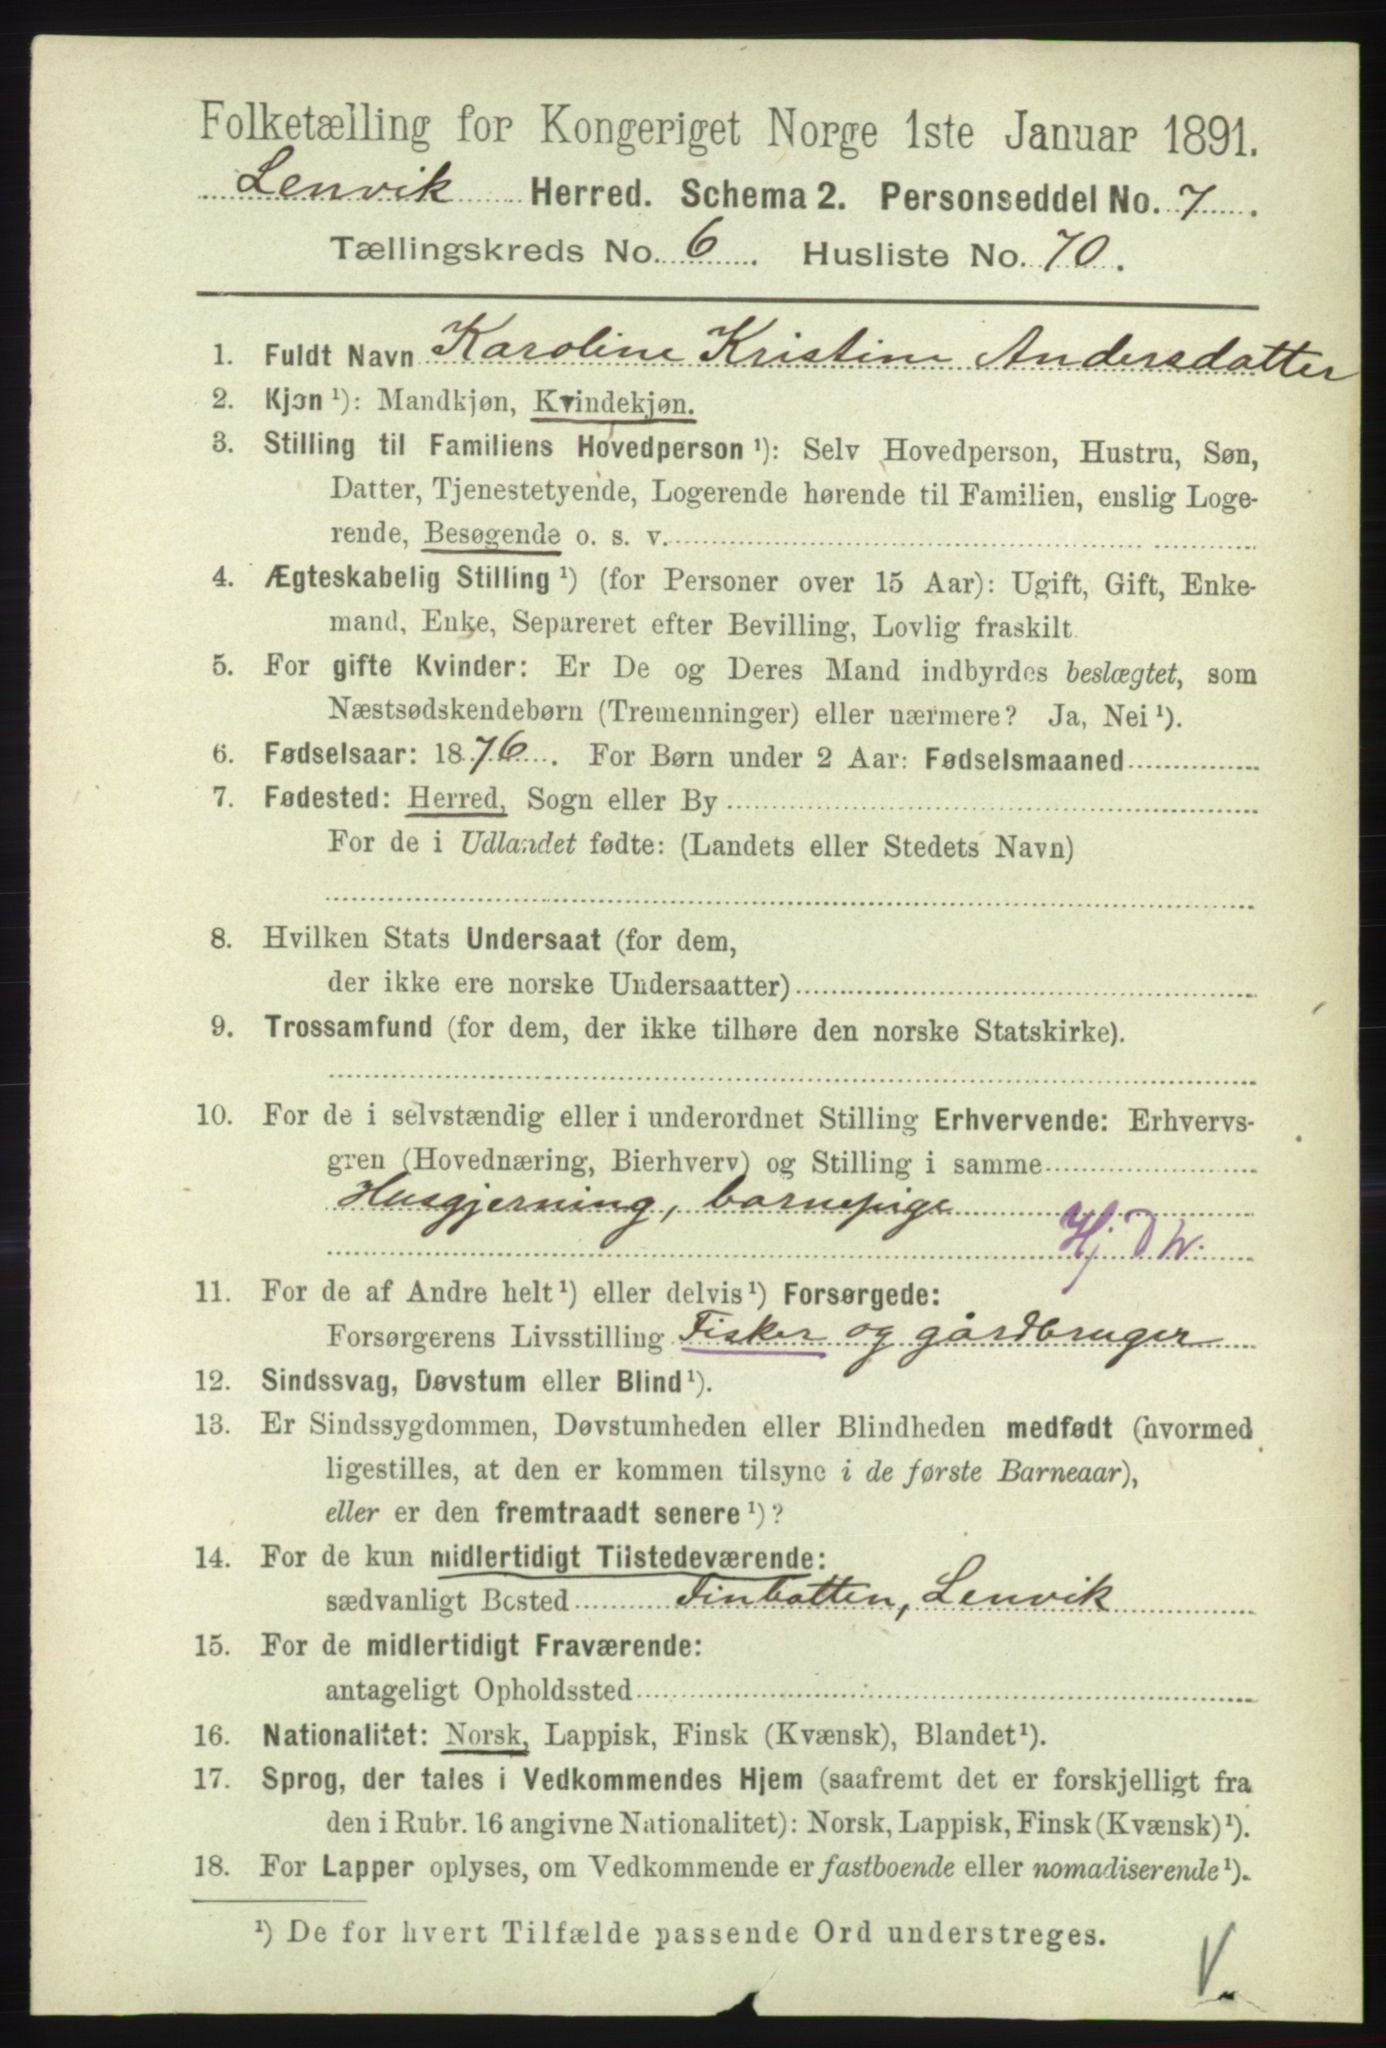 Folketælling for Kongeriget Norge 1ste Januar 1891.
Lenvik Herred. Schema 2. Personseddel No. 7.
Tællingskreds No. 6. Husliste No. 70.
1. Fuldt Navn Karoline Kristine Andersdatter
2. Kjøn ¹): Mandkjøn, Kvindekjøn.
3. Stilling til Familiens Hovedperson ¹): Selv Hovedperson, Hustru, Søn,
Datter, Tjenestetyende, Logerende hørende til Familien, enslig Loge-
rende, Besøgende o. s. v.
4. Ægteskabelig Stilling ¹) (for Personer over 15 Aar): Ugift, Gift, Enke-
mand, Enke, Separeret efter Bevilling, Lovlig fraskilt.
5. For gifte Kvinder: Er De og Deres Mand indbyrdes beslægtet, som
Næstsødskendebørn (Tremenninger) eller nærmere? Ja, Nei ¹).
6. Fødselsaar: 1876. For Børn under 2 Aar: Fødselsmaaned
7. Fødested: Herred, Sogn eller By
For de i Udlandet fødte: (Landets eller Stedets Navn)
8. Hvilken Stats Undersaat (for dem,
der ikke ere norske Undersaatter)
9. Trossamfund (for dem, der ikke tilhøre den norske Statskirke).
10. For de i selvstændig eller i underordnet Stilling Erhvervende: Erhvervs-
gren (Hovednæring, Bierhverv) og Stilling i samme
Husgjerning, barnepige
Hj. D w.
11. For de af Andre helt ¹) eller delvis ¹) Forsørgede:
Forsørgerens Livsstilling Fisker og gårdbruger
12. Sindssvag, Døvstum eller Blind ¹).
13. Er Sindssygdommen, Døvstumheden eller Blindheden medfødt (hvormed
ligestilles, at den er kommen tilsyne i de første Barneaar),
eller er den fremtraadt senere ¹)?
14. For de kun midlertidigt Tilstedeværende:
sædvanligt Bosted Finbotten, Lenvik
15. For de midlertidigt Fraværende:
antageligt Opholdssted
16. Nationalitet: Norsk, Lappisk, Finsk (Kvænsk), Blandet ¹).
17. Sprog, der tales i Vedkommendes Hjem (saafremt det er forskjelligt fra
den i Rubr. 16 angivne Nationalitet): Norsk, Lappisk, Finsk (Kvænsk) ¹).
18. For Lapper oplyses, om Vedkommende er fastboende eller nomadiserende ¹).
¹) De for hvert Tilfælde passende Ord understreges.
V.